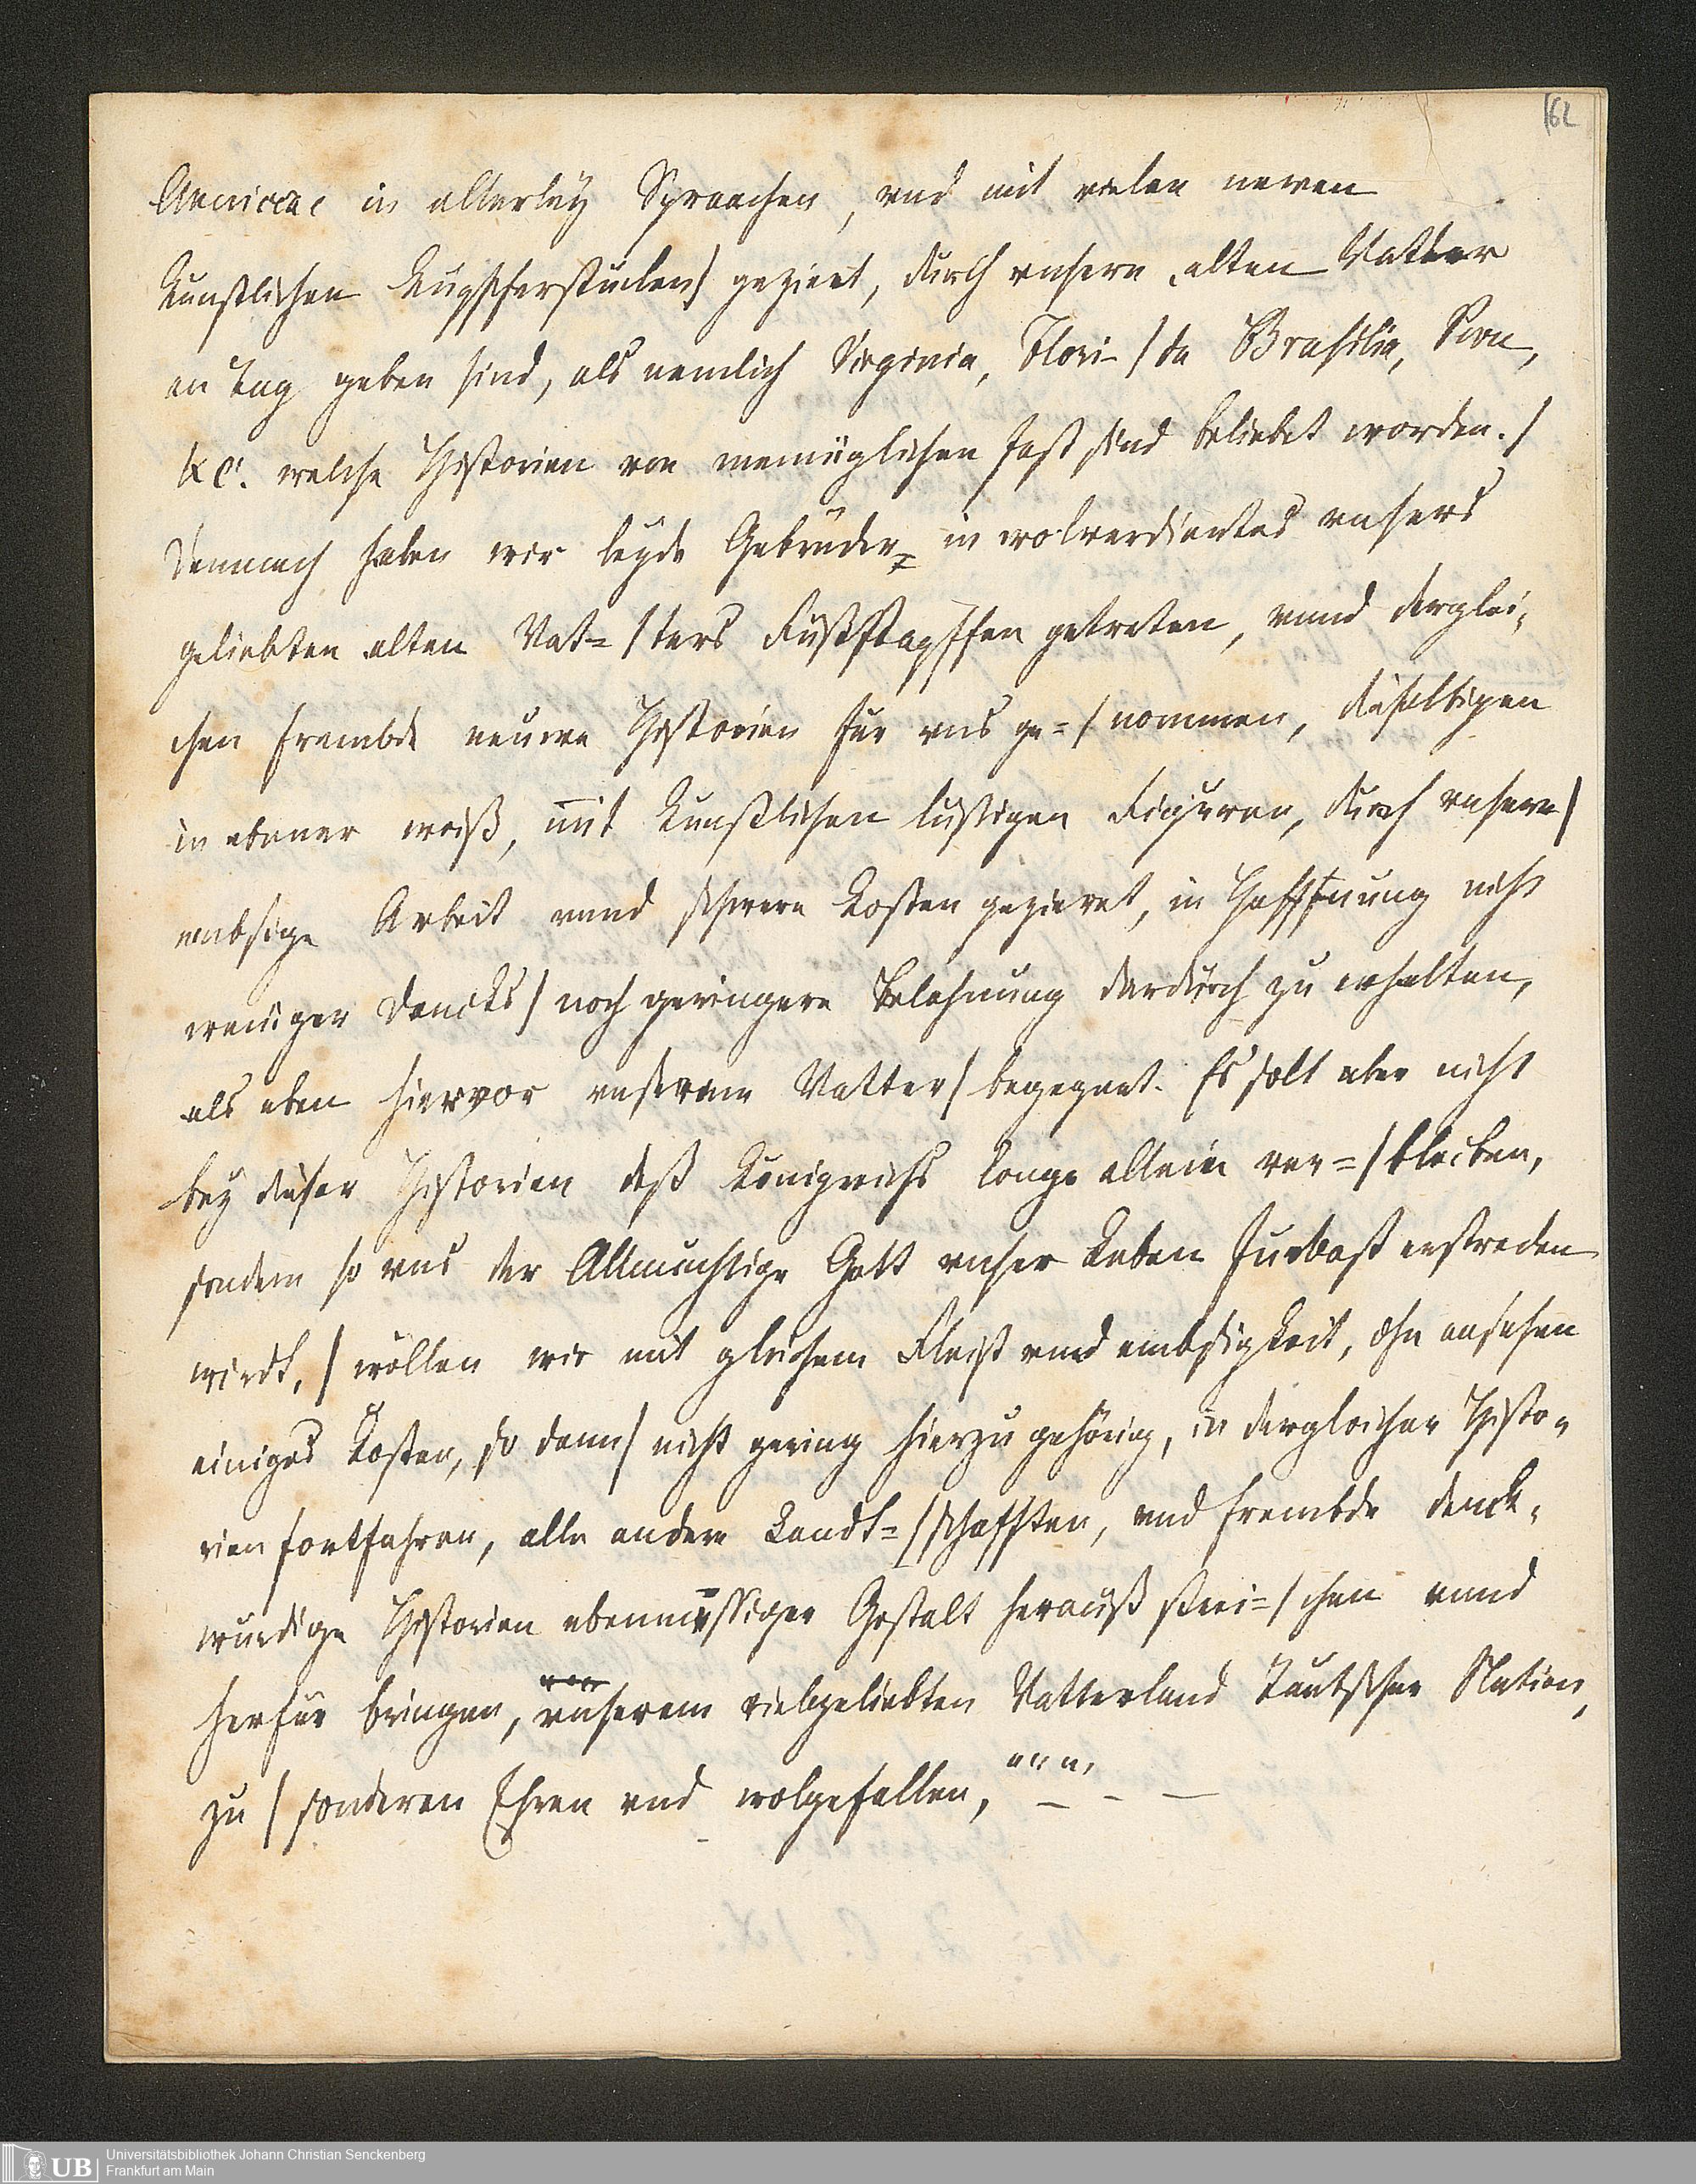 162
Americae in allerley Spraachen, vnd mit vielen newen
Kunstlichen Kupfferstucken / geziert, durch vnsern alten Vatter
an tag geben sind, als nemlich Virginia, Flori- / da Brasilia,
&c. welche Historien von menniglichen fast sind beliebt worden. /
Demnach haben wir beyde Gebrüder in wolverdientes vnsers
geliebten alten Vat= / ters Fußstapffen getreten, vnnd derglei-
chen frembde neuwe Historien fur vns ge= / nommen, dieselbigen
in ebener weiß, mit Kunstlichen lustigen Figuren, durch vnsere /
embsige Arbeit vnnd schwere Kosten gezieret, in Hoffnung nicht
weniger Dancks / noch geringere Belohnung dardurch zu erhalten,
als eben hiervor vnserem Vatter / begegnet. Es solt aber nicht
bey dieser Historien deß Königreichs Congo allein ver= / bleiben,
sondern so vns der Allmächtige Gott vnser Leben furbaß erstrecken
wirdt, / wöllen wir mit gleichem Fleiß vnnd embsigkeit, ohn ansehen
einiges Kosten, so dann / nicht gering hierzu gehörig, in dergleichen Histo-
rien fortfahren, alle andere Landt= / schafften, vnd frembde denck-
wurdige Historien ebenmässiger Gestalt herauß strei= / chen vnnd
herfur bringen, vnserem vielgeliebten Vatterland Teutscher Nation,
zu / sonderen Ehren vnd wolgefallen, — - —
UB
Universitätsbibliothek Johann Christian Senckenberg
Frankfurt am Main